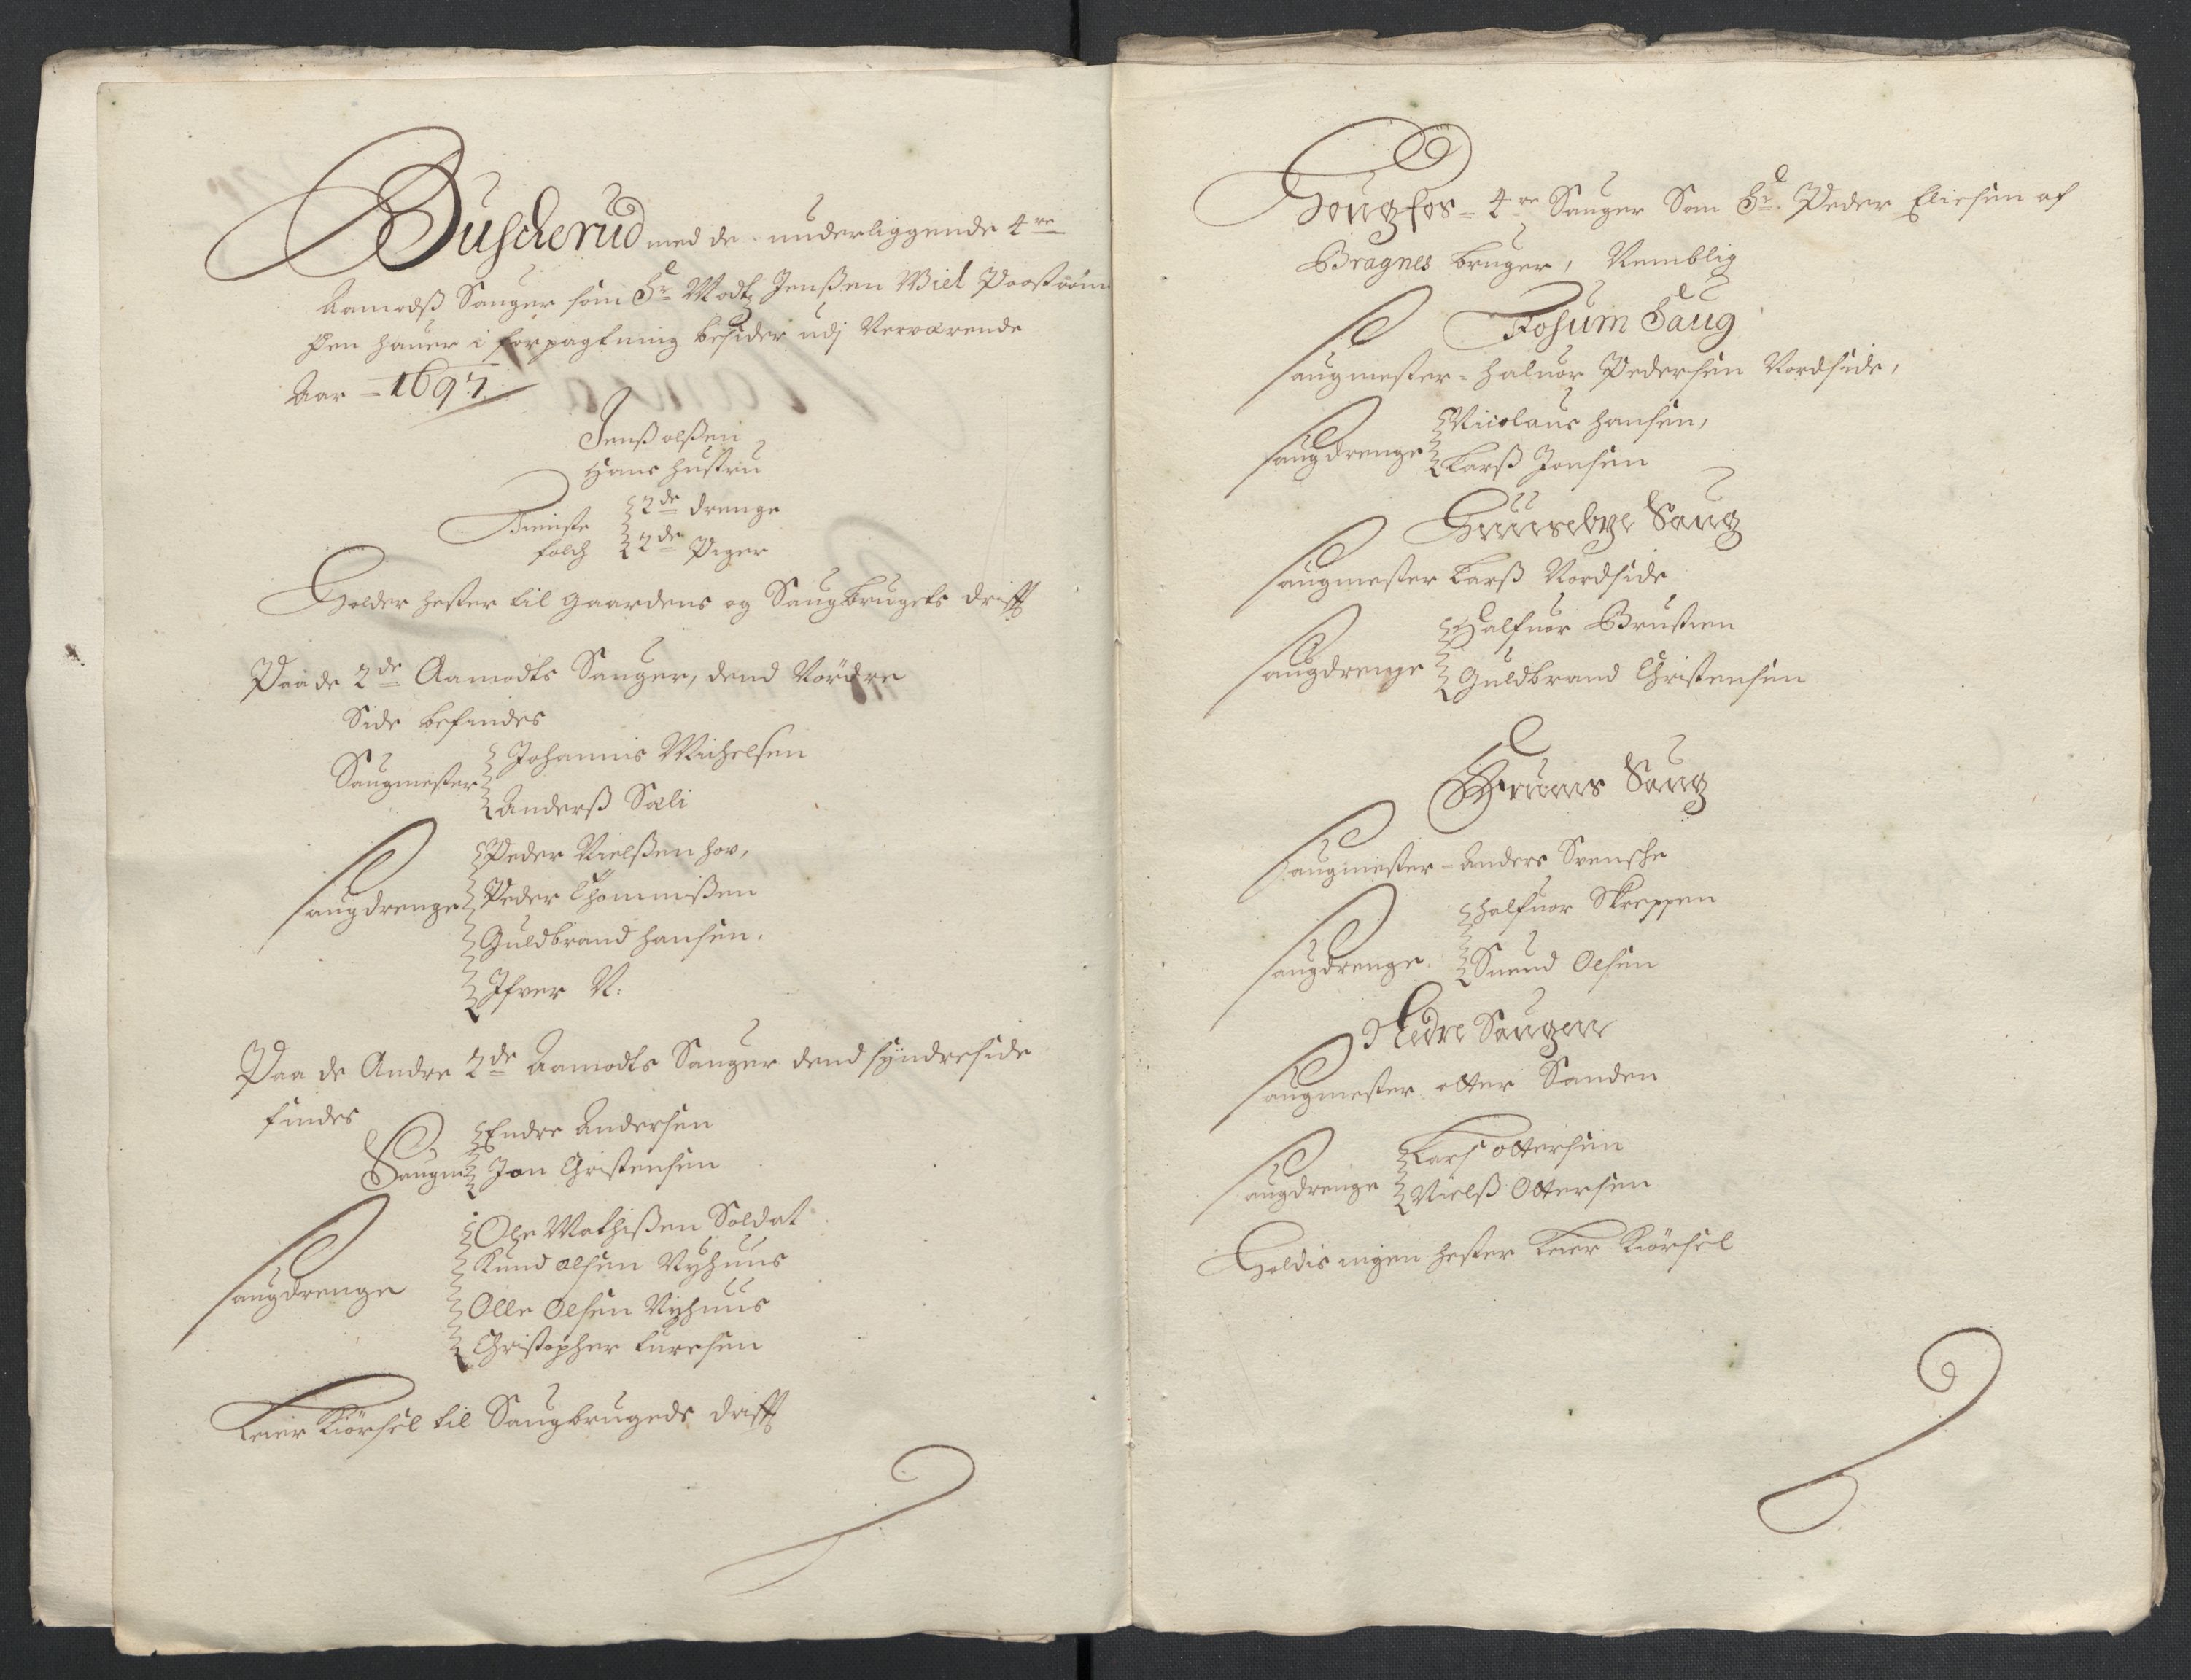 Buscherud med de underliggende 4re
Aamodß Sauger som Sr Madtz Jenßen Wiel paa Ström
Hen hauer i forpagtning besider udj Nerværende
Aar = 1697.
Jenß olßen
Hans hustru
Tieniste folch 2de drenge
2de Piger
Holder hester til gaardens og Saugbrugets drifft
Paa de 2de Aamodts Sauger, dend Nördre
Side befindes
Saugmester Johannis Michelsen
Anderß Sæli
Saugdrenge Peder Nielßen hov,
Peder Thommißen
Guldbrand hansen.
Ifver N:
Paa de Andre 2de Aamodts Sauger dend syndre side
findes
Saugm Endre Andersen
Jon Christensen
Saugdrenge Ole Mathißen Soldat
Knud olsen Nyhuus
Olle Olsen Nyhuus
Christopher Luresen
Leier Kiörsel til Saugbrugeds drifft
Hougfos = 4re Sauger Som Sr. Peder Eliesen af
Bragnes bruger, Nemblig
Fosum Saug
Saugmester = Haluor Pedersen Nordside,
Saugdrenge Nicolaus Hansen,
Larß Jonsen
Saug
Saugmester Larß Nordside
Saugdrenge Halfuor Brustuen
Guldbrand Christensen
Saug
Saugmester - Anders Svensche
Saugdrenge Halfuor Skreppen
Suend Olsen
Nedre Saugen
Saugmester otter Sanden
Saugdrenge Lars ottersen
Nielß Ottersen
Holdis ingen hester Leier Kiörsel